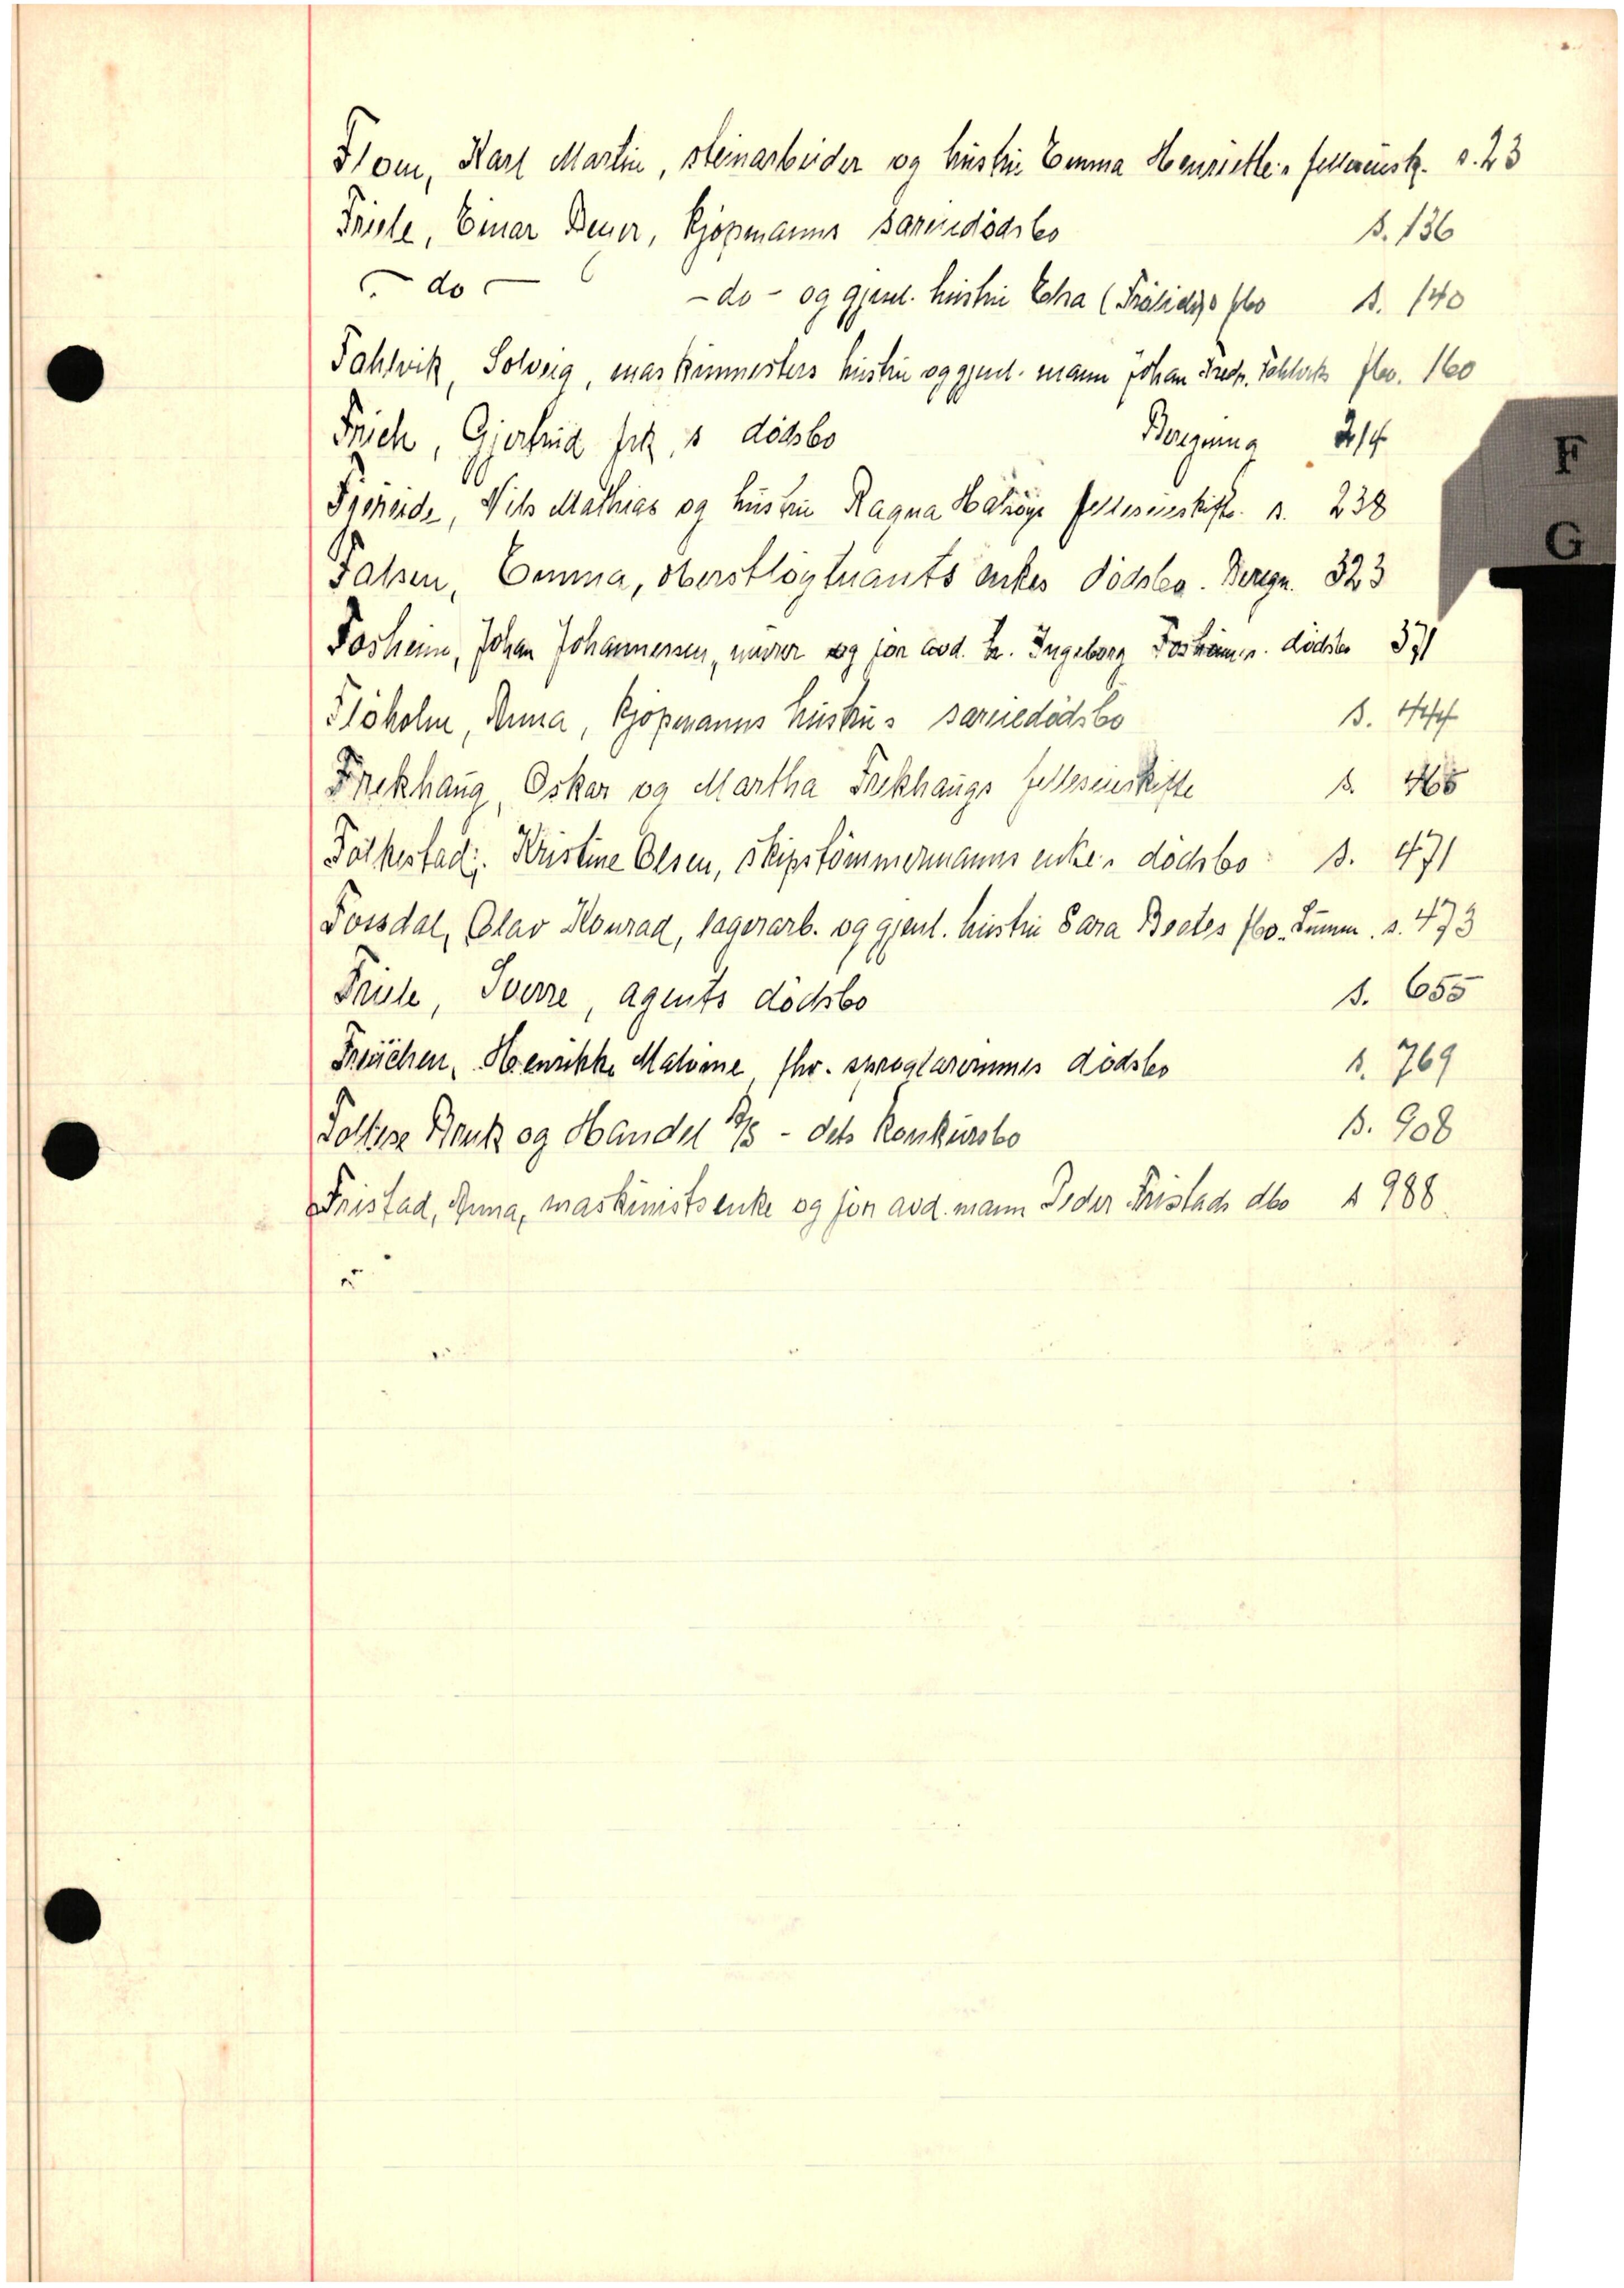 Flom, Karl Martin, steinarbeider og hustru Emma Henriette's felleseiesk. s. 23
Friele, Einar Beyer, kjøpmanns særeiedödsbo s. 136
- do - - do - og gjenl. hustru fbo s. 140
Fahlvik, Solveig, maskinmesters hustru og gjenl. mann Johan Fredr. Fahlviks fbo. 160
Frich, Gjertrud frk.,s dödsbo Beregning 214
Nils Mathias og hustru Ragna felleseieskifte. s. 238
Falsen, Emma, oberstlöytnants enkes dödsbo. Beregn. 323
Fosheim, Johan Johannessen, murer og før avd. h. Ingeborg Fosheim,s. dödsbo 371
Flöholm, Anna, kjöpmanns hustrus særeiedödsbo s. 444
Frekhaug, Oskar og Martha Frekhaugs felleseieskifte s. 465
Folkestad, Kristine Olsen, skipstömmermanns enke,s dödsbo s. 471
Fossdal, Olav Konrad, lagerarb. og gjenl. hustru Sara Boetes fbo. Summ. s. 473
Friele, Sverre, agents dödsbo s. 655
Freuchen, Henrikke Malvine, fhv. språklærerinnes dödsbo s. 769
Foltese Bruk og Handel A/S - dets konkursbo s. 908
Fristad, Anna, maskinistsenke og før avd. mann Peder Fristads dbo s 988
F
G